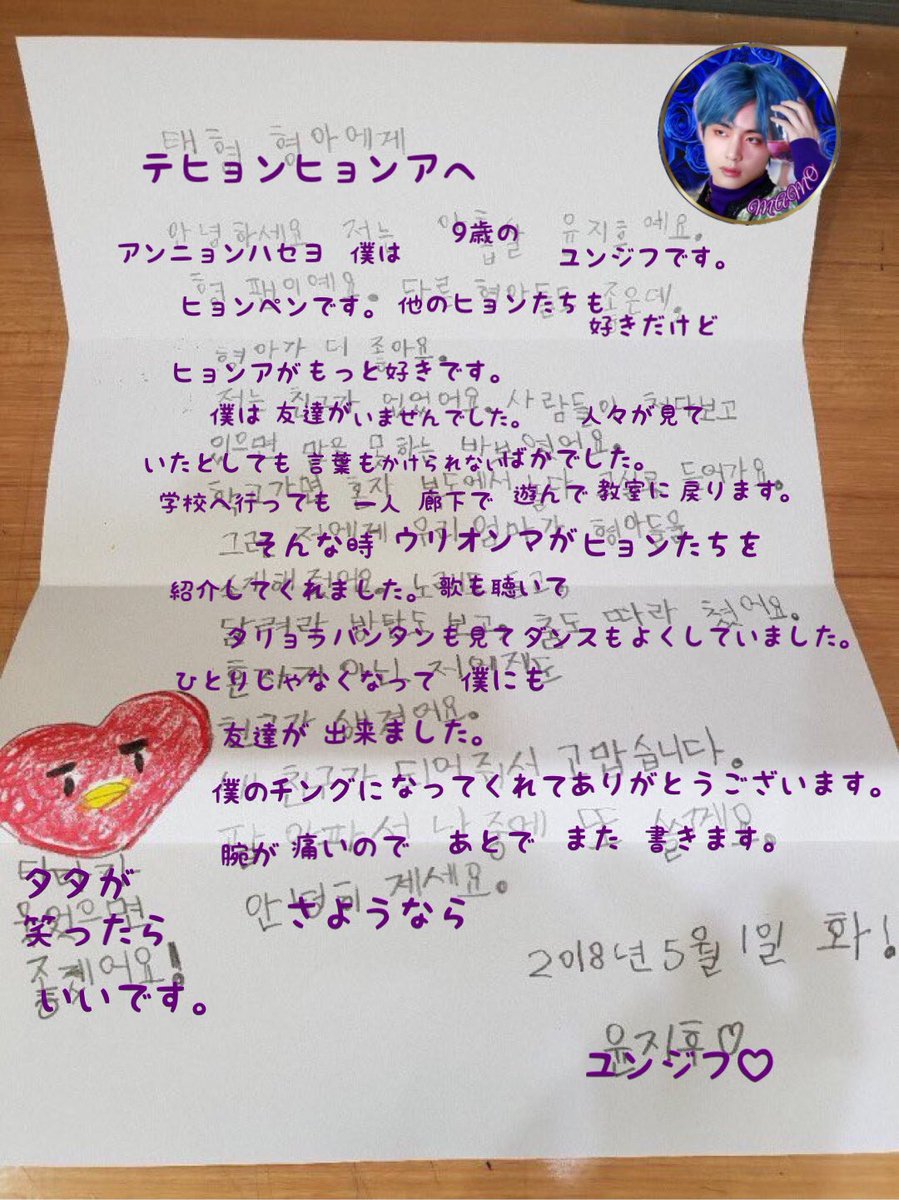 태형 형아에게
テヒョンヒョンアへ
안녕하세요 저는 아홉살 유지후예요.
アンニョンハセヨ 僕は 9歳の ユンジフです。
형 팬이예요. 다른 형아들도 조은데,
ヒョンペンです。他のヒョンたちも 好きだけど
형아가 더 좋아요.
ヒョンアがもっと好きです。
저는 친구가 없었어요. 사람들이 쳐다보고
僕は 友達がいませんでした。 人々が見て
있으면 말을 못하는 바보였어요.
いたとしても 言葉もかけられないばかでした。
학교가면 혼자 복도에서 놀다 들어가요.
学校へ行っても 一人 廊下で 遊んで 教室に 戻ります。
그런 저에게 우리 엄마가 형아들을
そんな時 ウリオンマがヒョンたちを
소개해 줬어요. 노래도 듣고,
紹介してくれました。歌も聴いて
달려라 방탄도 보고. 춤도 따라 췄어요.
タリョラバンタンも見てダンスもよくしていました。
저에게도
ひとりじゃなくなって 僕にも
친구가 생겼어요.
友達が 出来ました。
내 친구가 되어줘서 고맙습니다.
僕のチングになってくれてありがとうございます。
팔 아파서 나중에 또 쓸께요.
腕が 痛いので あとで また 書きます。
안녕히 계세요.
さようなら
タタが
웃었으면
笑ったら
좋겠어요!
いいです。
2018년 5월 1일 화!
윤지후♡
ユンジフ♡
MAMO